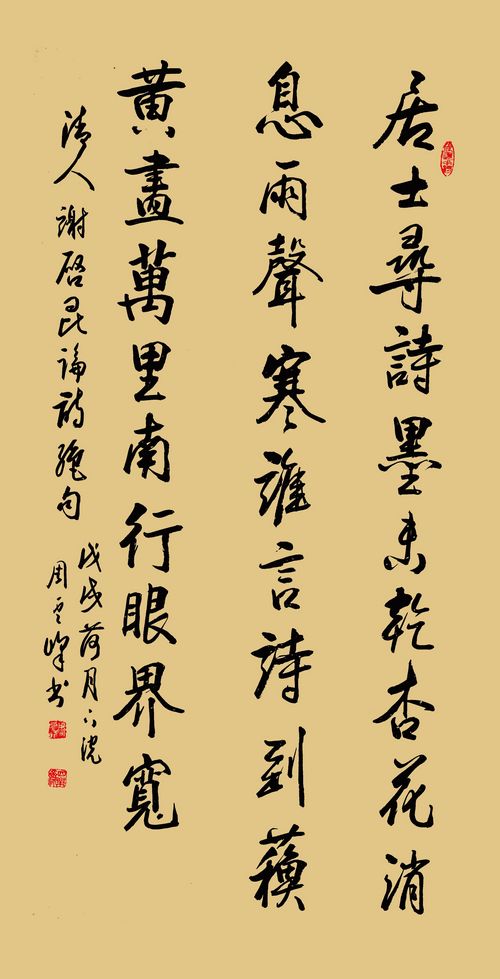 居士尋詩墨未乾杏花消
息雨聲寒誰言詩到蘓
黄畫萬里南行眼界寬
清人謝啓昆論詩絶句
戊戌荷月下浣
周雲峰书